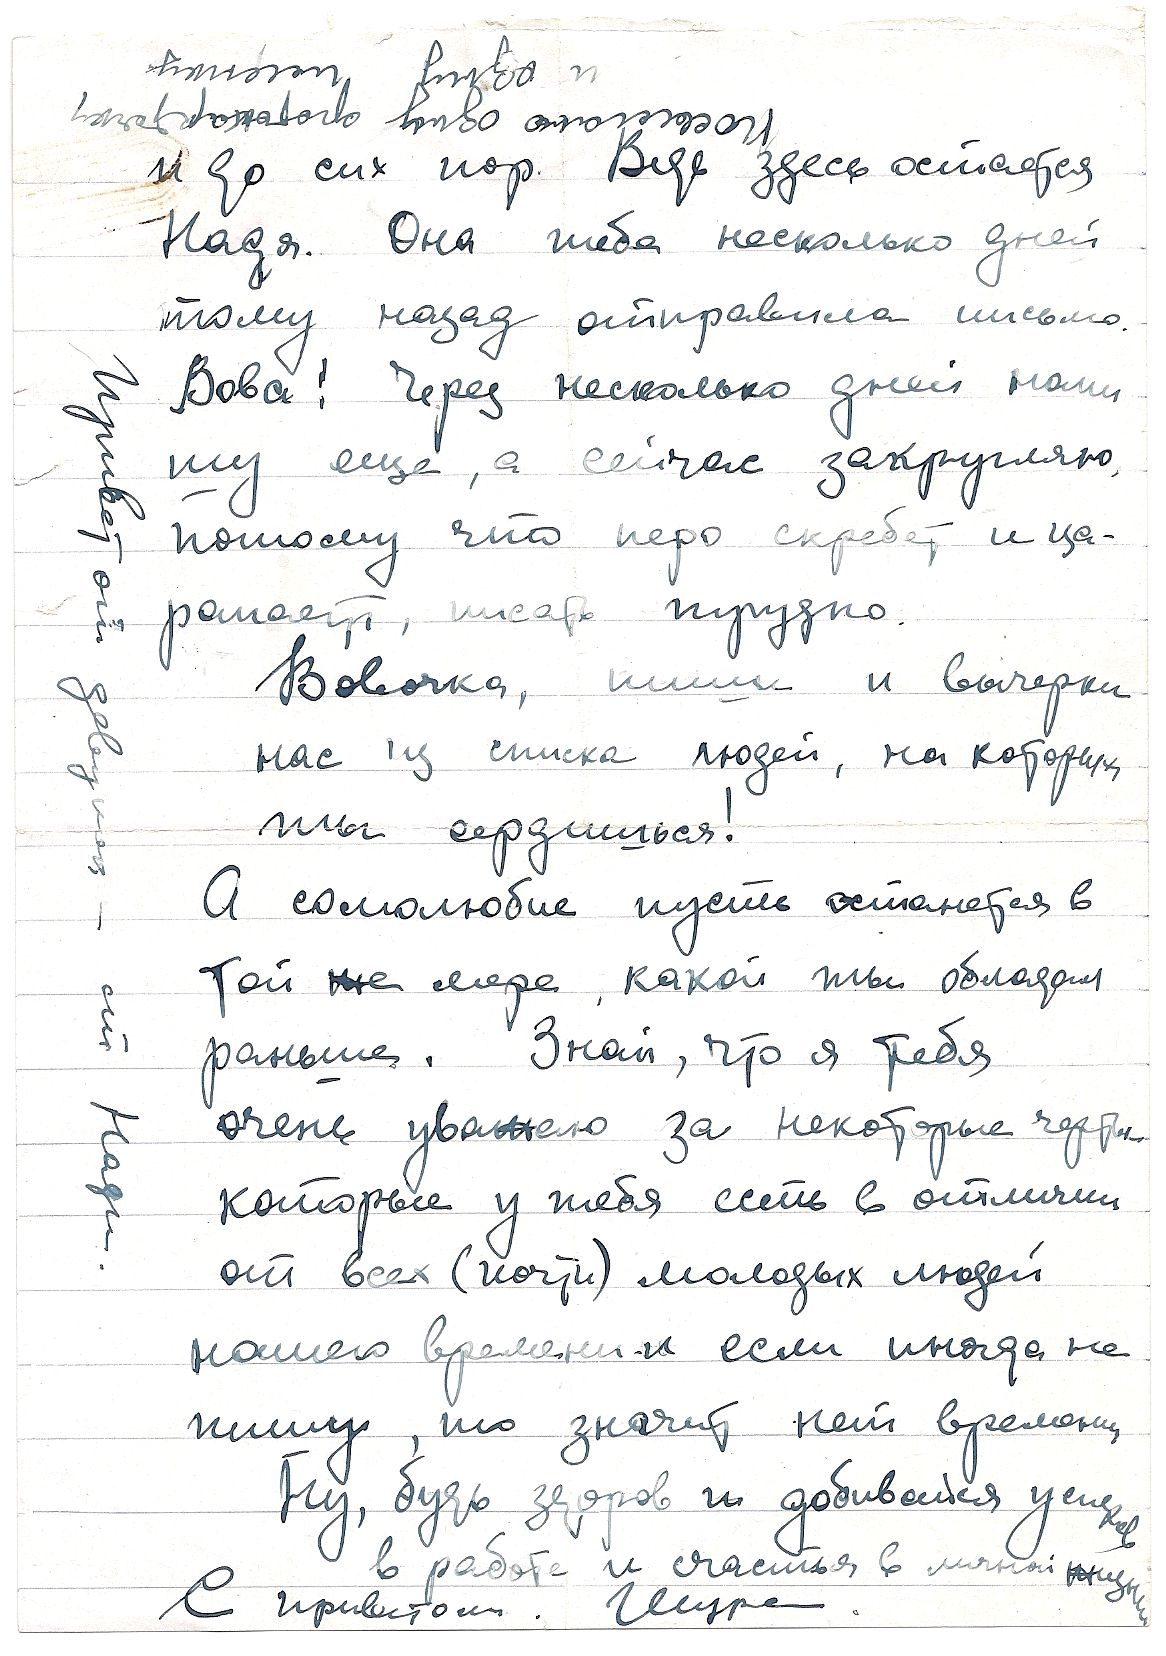 и до сих пор. Ведь здесь остается
Надя. Она тебе несколько дней
тому назад отправила письмо.
Вова! Через несколько дней напи
шу еще, а сейчас закругляю,
потому что перо скребет и ца-
рапает, писать трудно.
Вовочка, пиши и вычерки
нас из списка людей, на которых
ты сердишься!
А самолюбие пусть останется в
той же мере, какой ты обладал
раньше. Знай, что я тебя
очень уважаю за некоторые черты
которые у тебя есть в отличии
от всех (почти) молодых людей
нашего времени и если иногда не
пишу, то значит нет времени
Ну, будь здоров и добивайся успехов
в работе и счастья в личной жизни
С приветом. Шура.
Привет от девушки – от Нади.
Посылаю одну фотокарточку
и одну